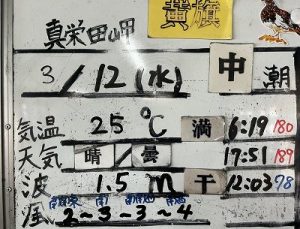 真栄田岬 黄旗
3/12(水) 中 潮
気温 25℃ 満 6:19 180
天気 晴/曇 17:51 189
波 1.5m 干 12:03 78
南南東 南 南南西 南西
風 2~3~3~4